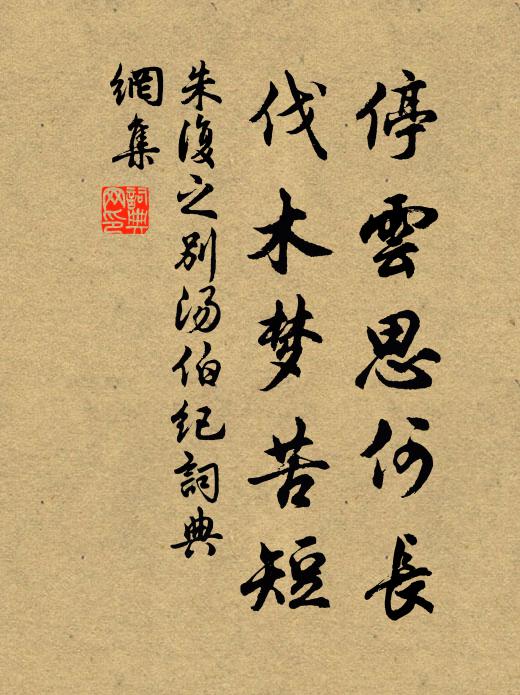 停雲思何長
伐木梦苦短
朱復之别汤伯纪詞典
網集
詞典網印